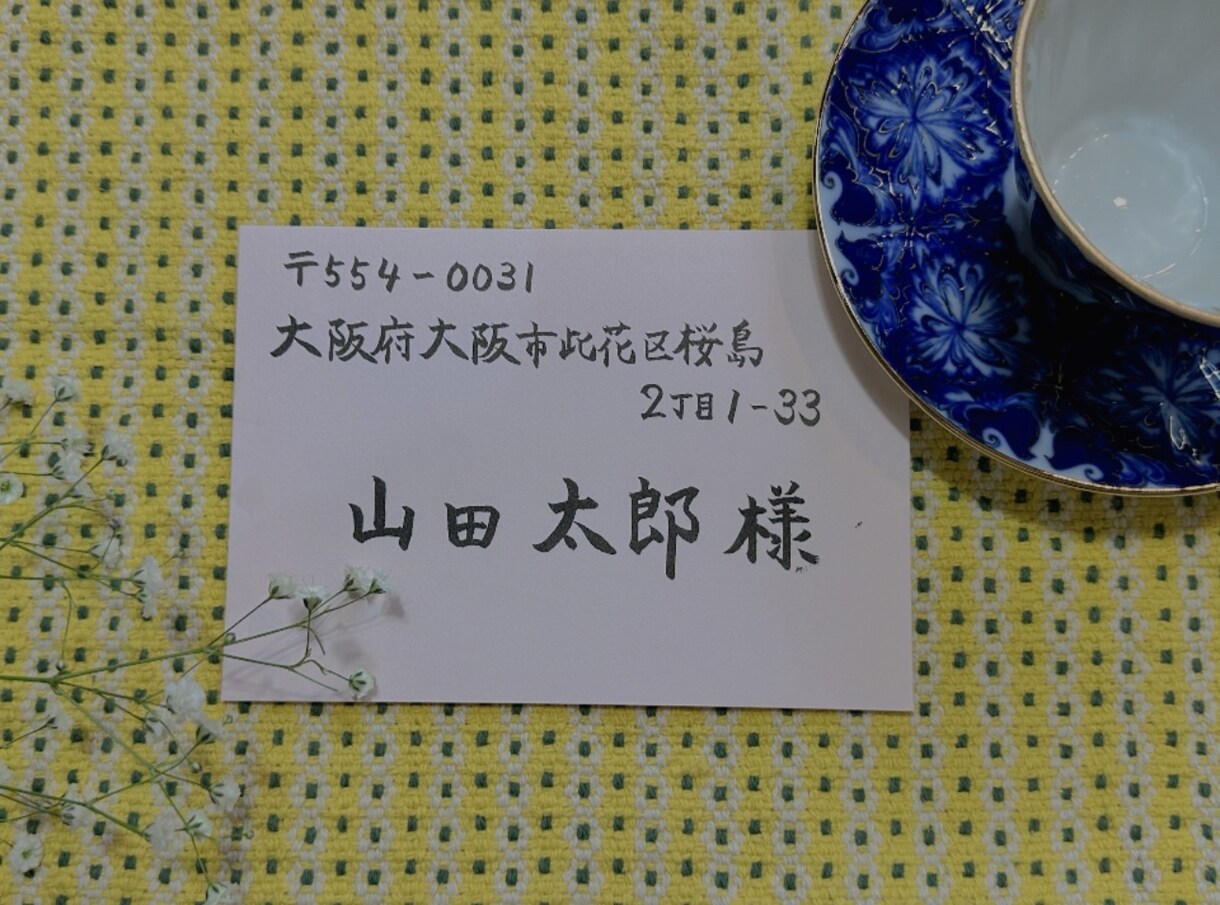 〒554-0031
大阪府大阪市此花区桜島
2丁目1-33
山田太郎様